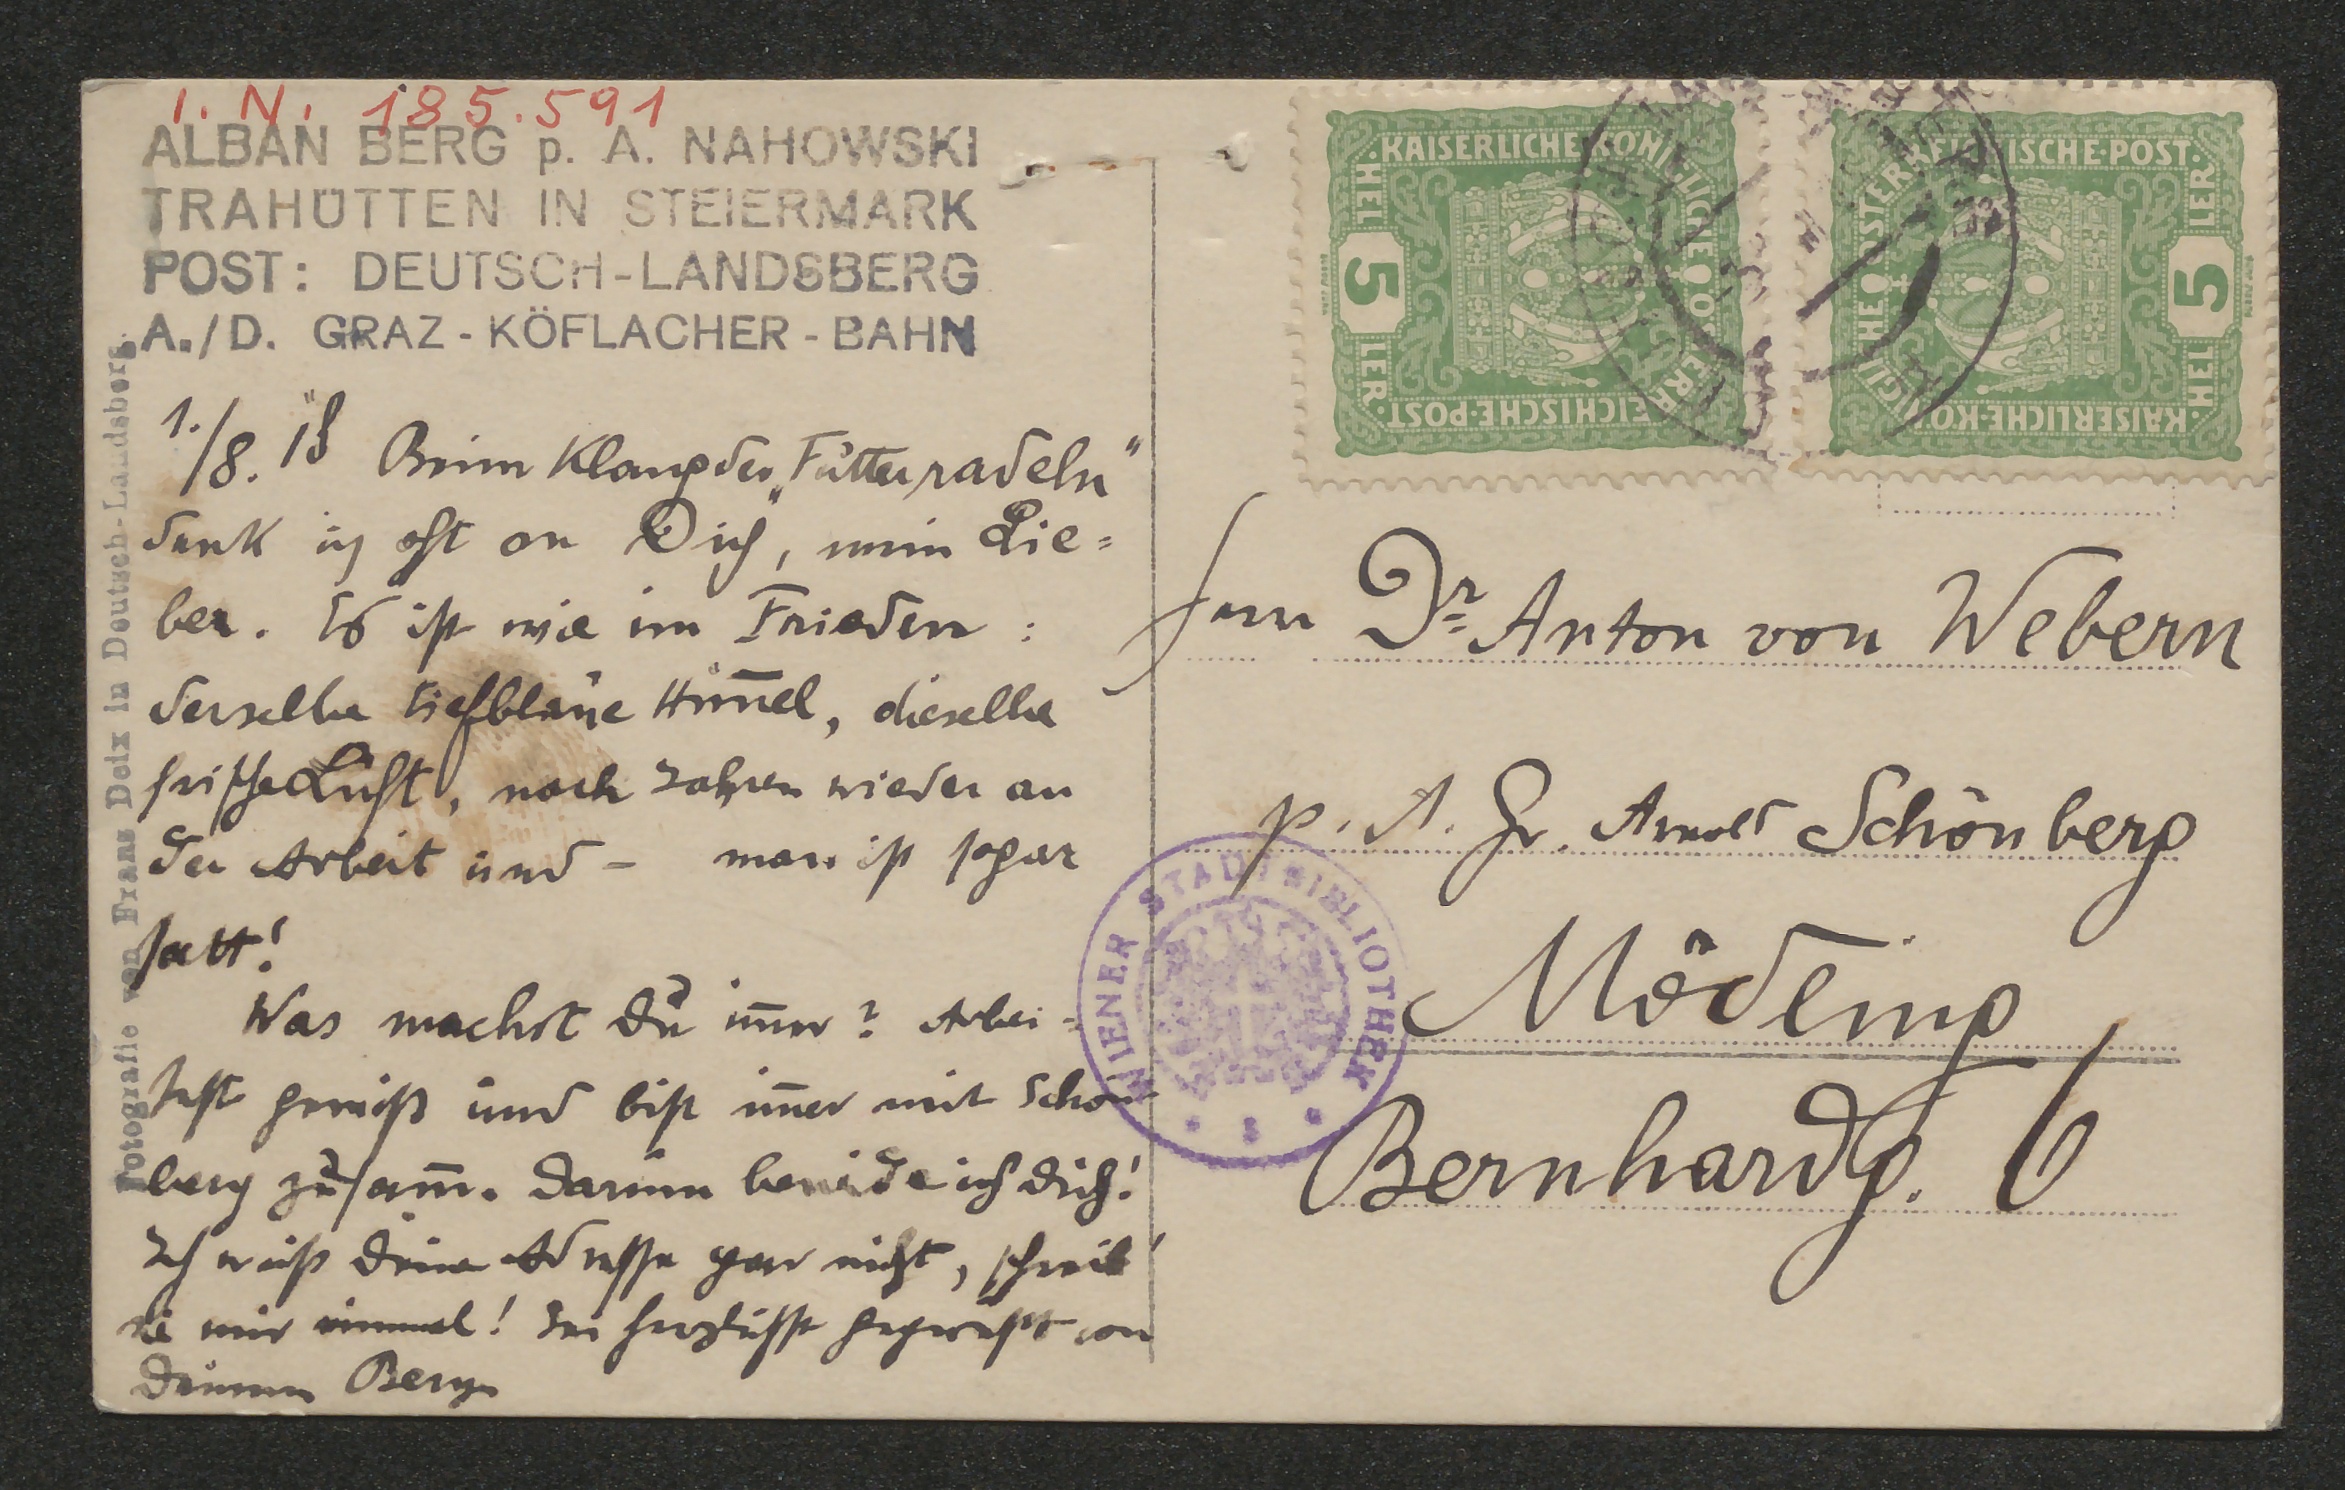 I. N. 185.591
ALBAN BERG p. A. NAHOWSKI
TRAHÜTTEN IN STEIERMARK
POST: DEUTSCH-LANDSBERG
A./D. GRAZ-KÖFLACHER-BAHN
1./8. 18 Beim Klang der „Futterradeln"
denk ich oft an Dich, mein Lie=
ber. Es ist wie im Frieden:
derselbe tiefblaue Him̅el, dieselbe
frische Luft, nach Jahren wieder an
der Arbeit und – man ist sogar
satt!
Was machst Du im̅er? Arbei=
test gewiß und bist im̅er mit Schön
berg zusam̅. Darum beneide ich Dich!
Ich weiß Deine Adresse gar nicht, schreib'
sie mir einmal! Sei herzlichst gegrüßt von
Deinem Berg
Fotografie von Franz Deix in Deutsch-Landsberg.
KAISERLICHE KÖNIGLICHE ÖSTERREICHISCHE POST
5 HELLER
KAISERLICHE KÖNIGLICHE ÖSTERREICHISCHE POST
5 HELLER
Herrn Dr Anton von Webern
p. A. Hr. Arnold Schönberg
Mödling
Bernhardg. 6
WIENER STADTBIBLIOTHEK